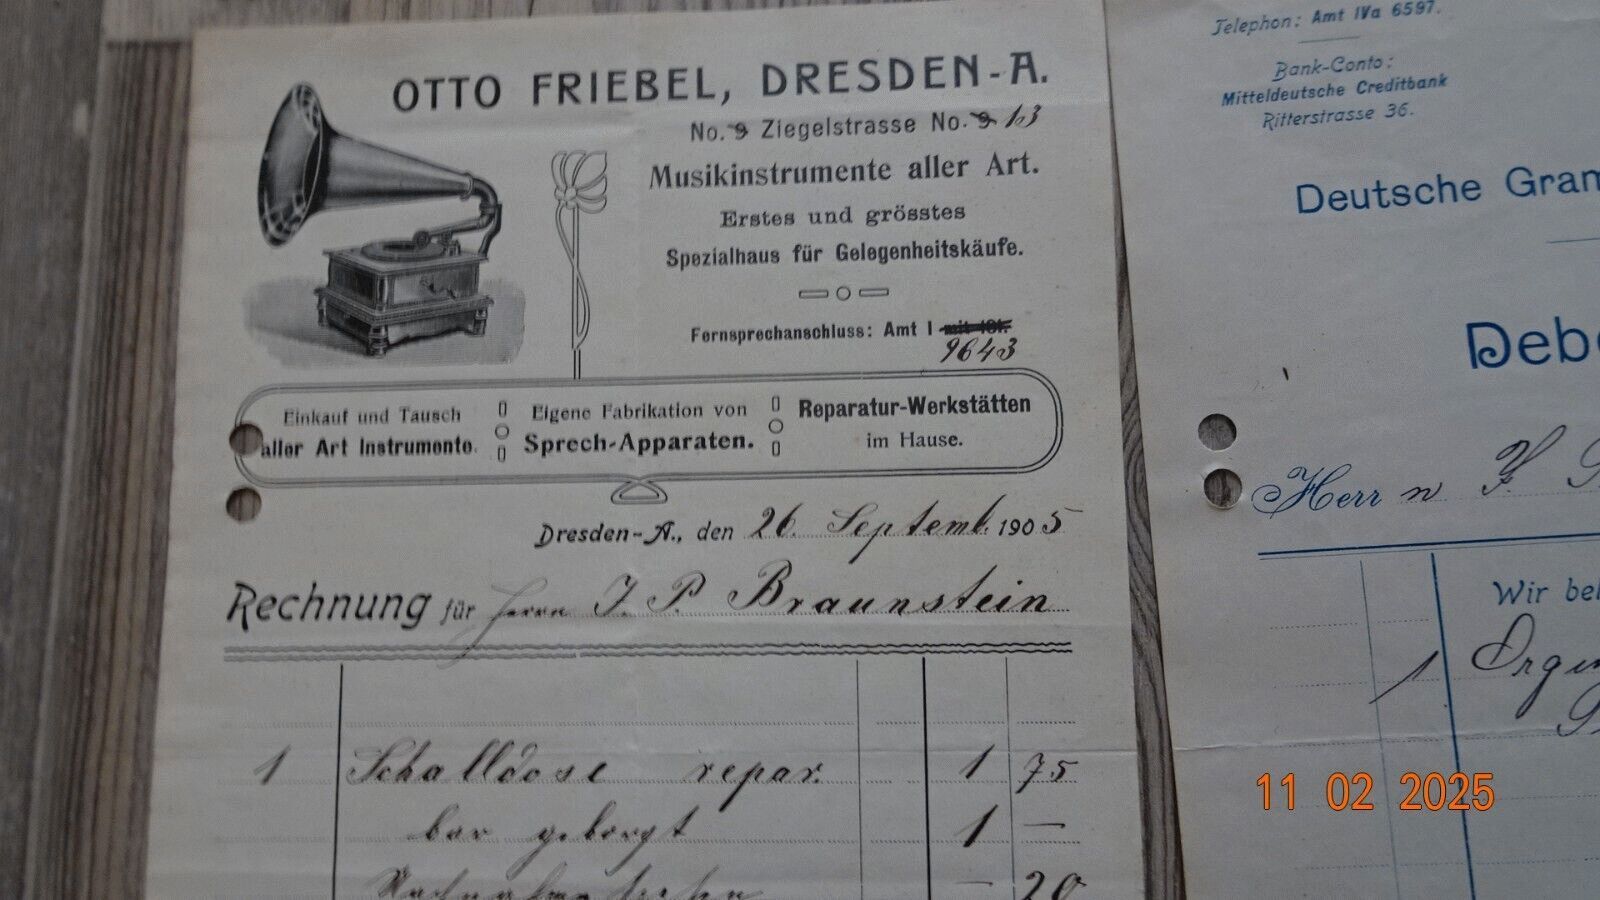 OTTO FRIEBEL, DRESDEN-A.
No. 9 Ziegelstrasse No. 9 13
Musikinstrumente aller Art.
Erstes und grösstes
Spezialhaus für Gelegenheitskäufe.
Fernsprechanschluss: Amt I
9643
Einkauf und Tausch
aller Art Instrumente.
Eigene Fabrikation von
Sprech-Apparaten.
Reparatur-Werkstätten
im Hause.
Dresden-A., den 26. Septemb. 1905
Rechnung für Herrn J. P. Braunstein
1 Schalldose repar. 1 75
bar geborgt 1 —
— 20
Telephon: Amt IVa 6597.
Bank-Conto:
Mitteldeutsche Creditbank
Ritterstrasse 36.
Deutsche Gram
Debe
Herrn
Wir bel
1
11 02 2025